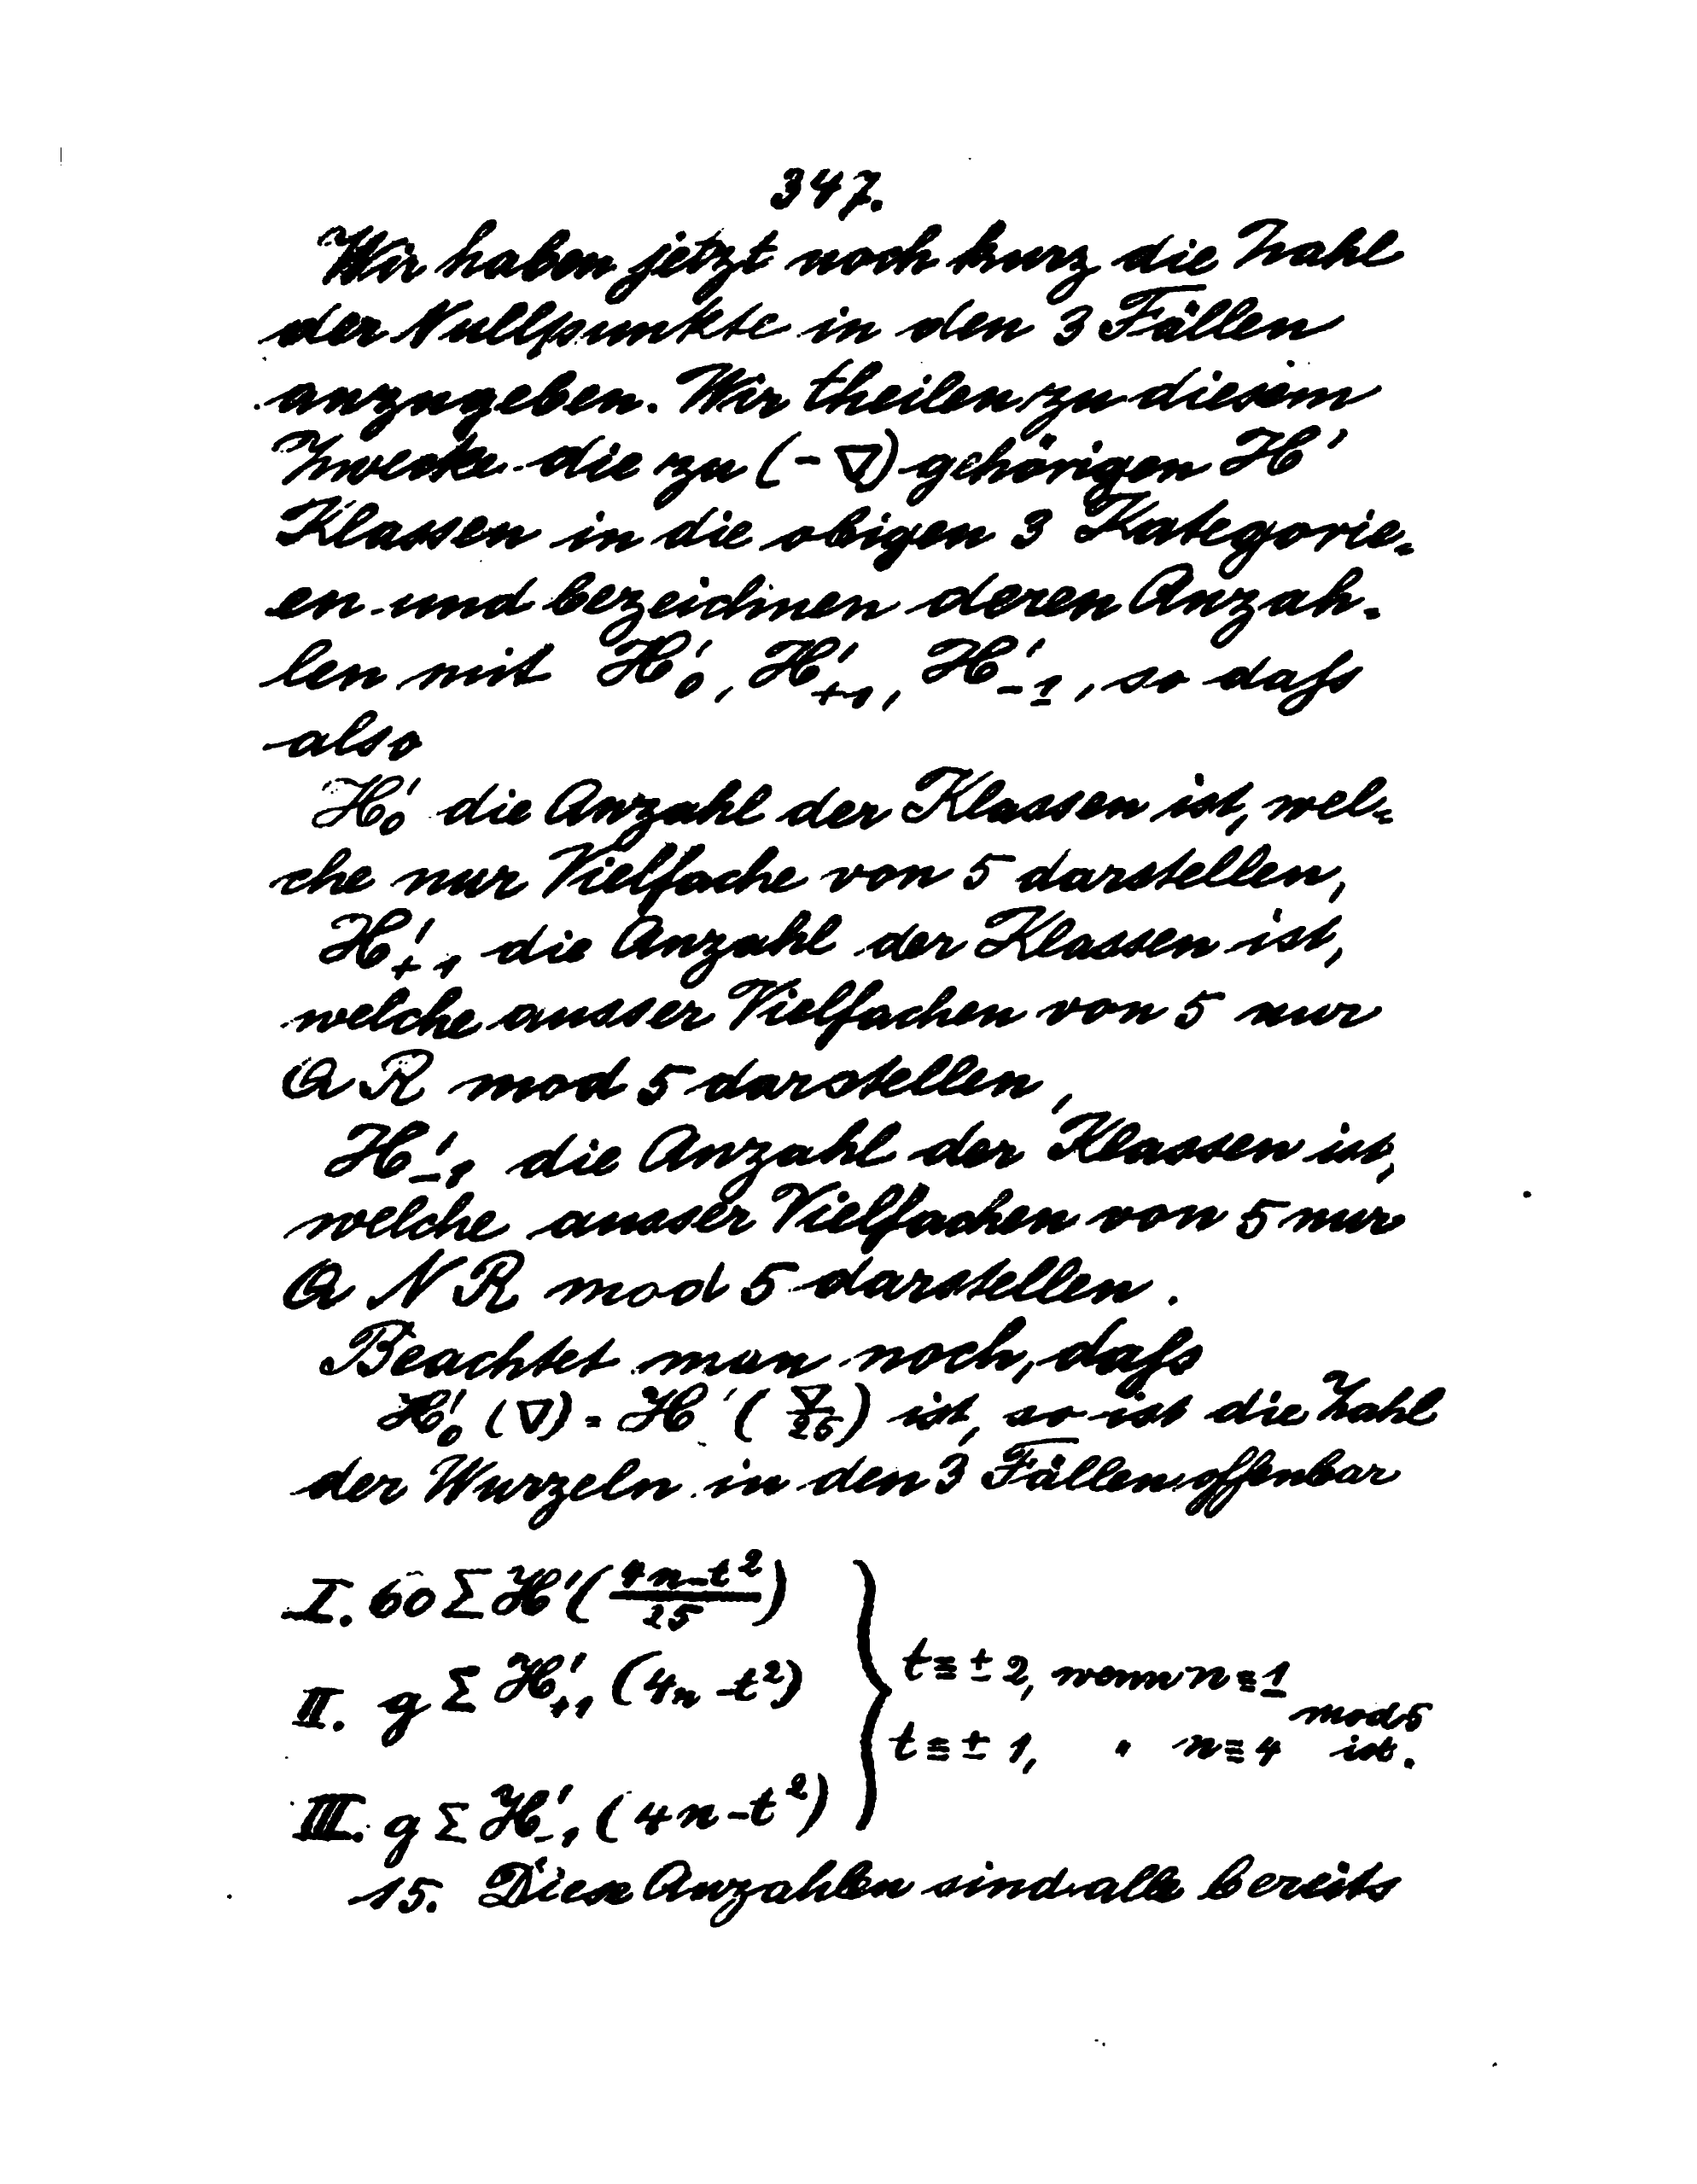 347.
Wir haben jetzt noch kurz die Zahl
der Nullpunkte in den 3 Fällen
anzugeben. Wir theilen zu diesem
Zwecke die zu (-∇) gehörigen H'
Klassen in die obigen 3 Kategorie=
en und bezeichnen deren Anzah-
len mit H'₀, H'₊₁, H'₋₁, so daſs
also
H'₀ die Anzahl der Klassen ist, wel=
che nur Vielfache von 5 darstellen,
H'₊₁ die Anzahl der Klassen ist,
welche ausser Vielfachen von 5 nur
Q R mod 5 darstellen,
H'₋₁ die Anzahl der Klassen ist,
welche ausser Vielfachen von 5 nur
Q N R mod 5 darstellen.
Beachtet man noch, daſs
H'₀ (∇) = H' (∇/25) ist, so ist die Zahl
der Wurzeln in den 3 Fällen offenbar
I. 60 Σ H' ((4n-t²)/25)
II. g Σ H'₊₁ (4n-t²)
t ≡ ± 2, wenn n ≡ 1
mod 5
t ≡ ± 1, " n ≡ 4 ist.
III. g Σ H'₋₁ (4n-t²)
15. Diese Anzahlen sind alle bereits